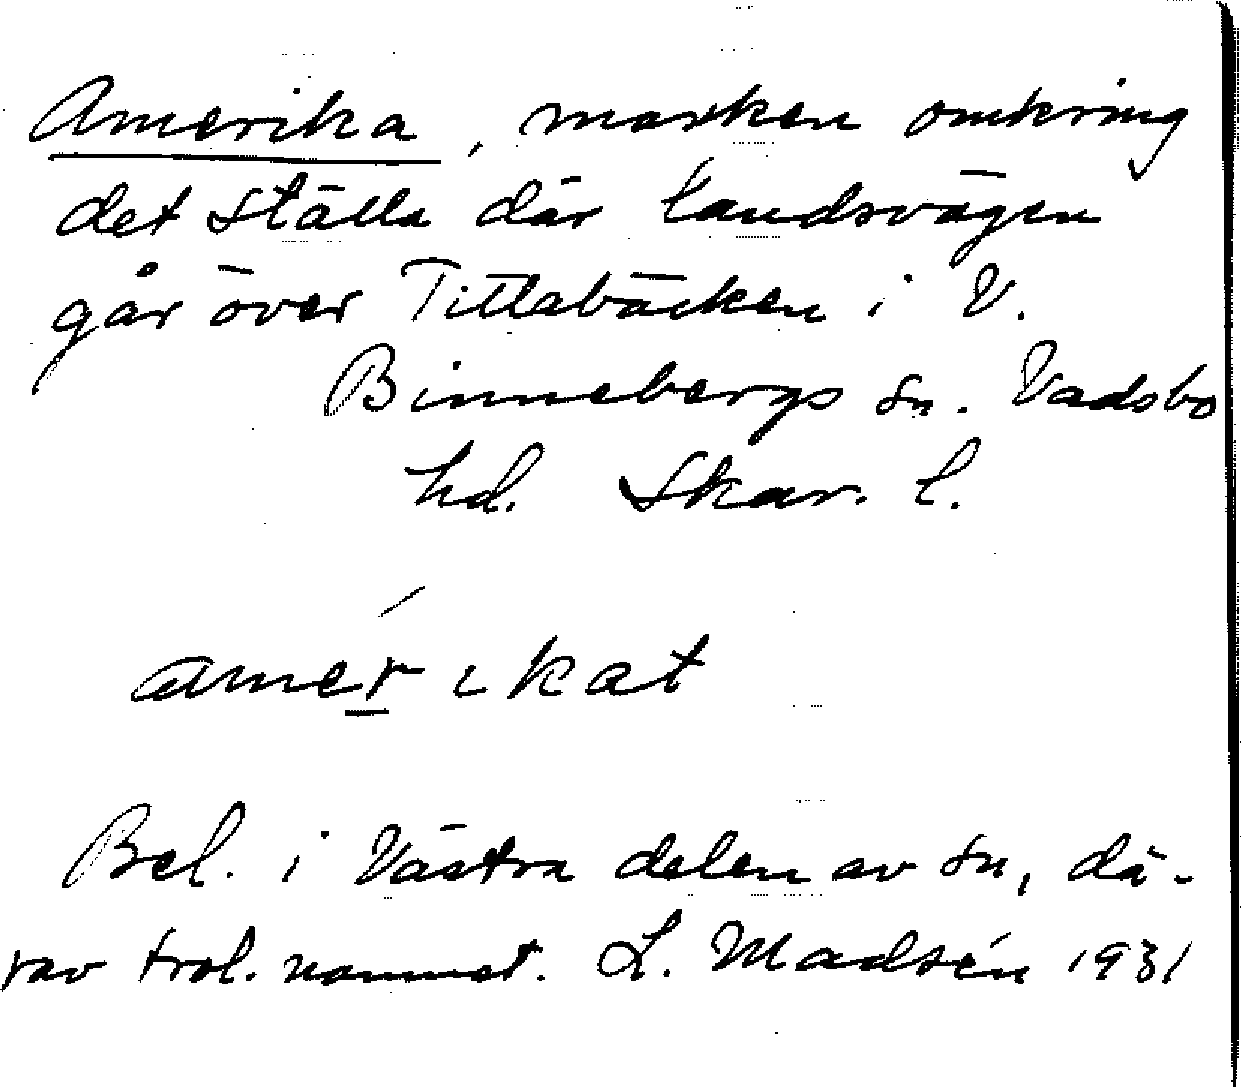 Amerika, marken omkring
det ställe där landsvägen
går över Tittebäcken i V.
Binnebergs sn. Vadsbo
hd. Skar. l.
amerikat
Bel. i västra delen av sn, dä-
rav trol. namnet. L. Madsén 1931